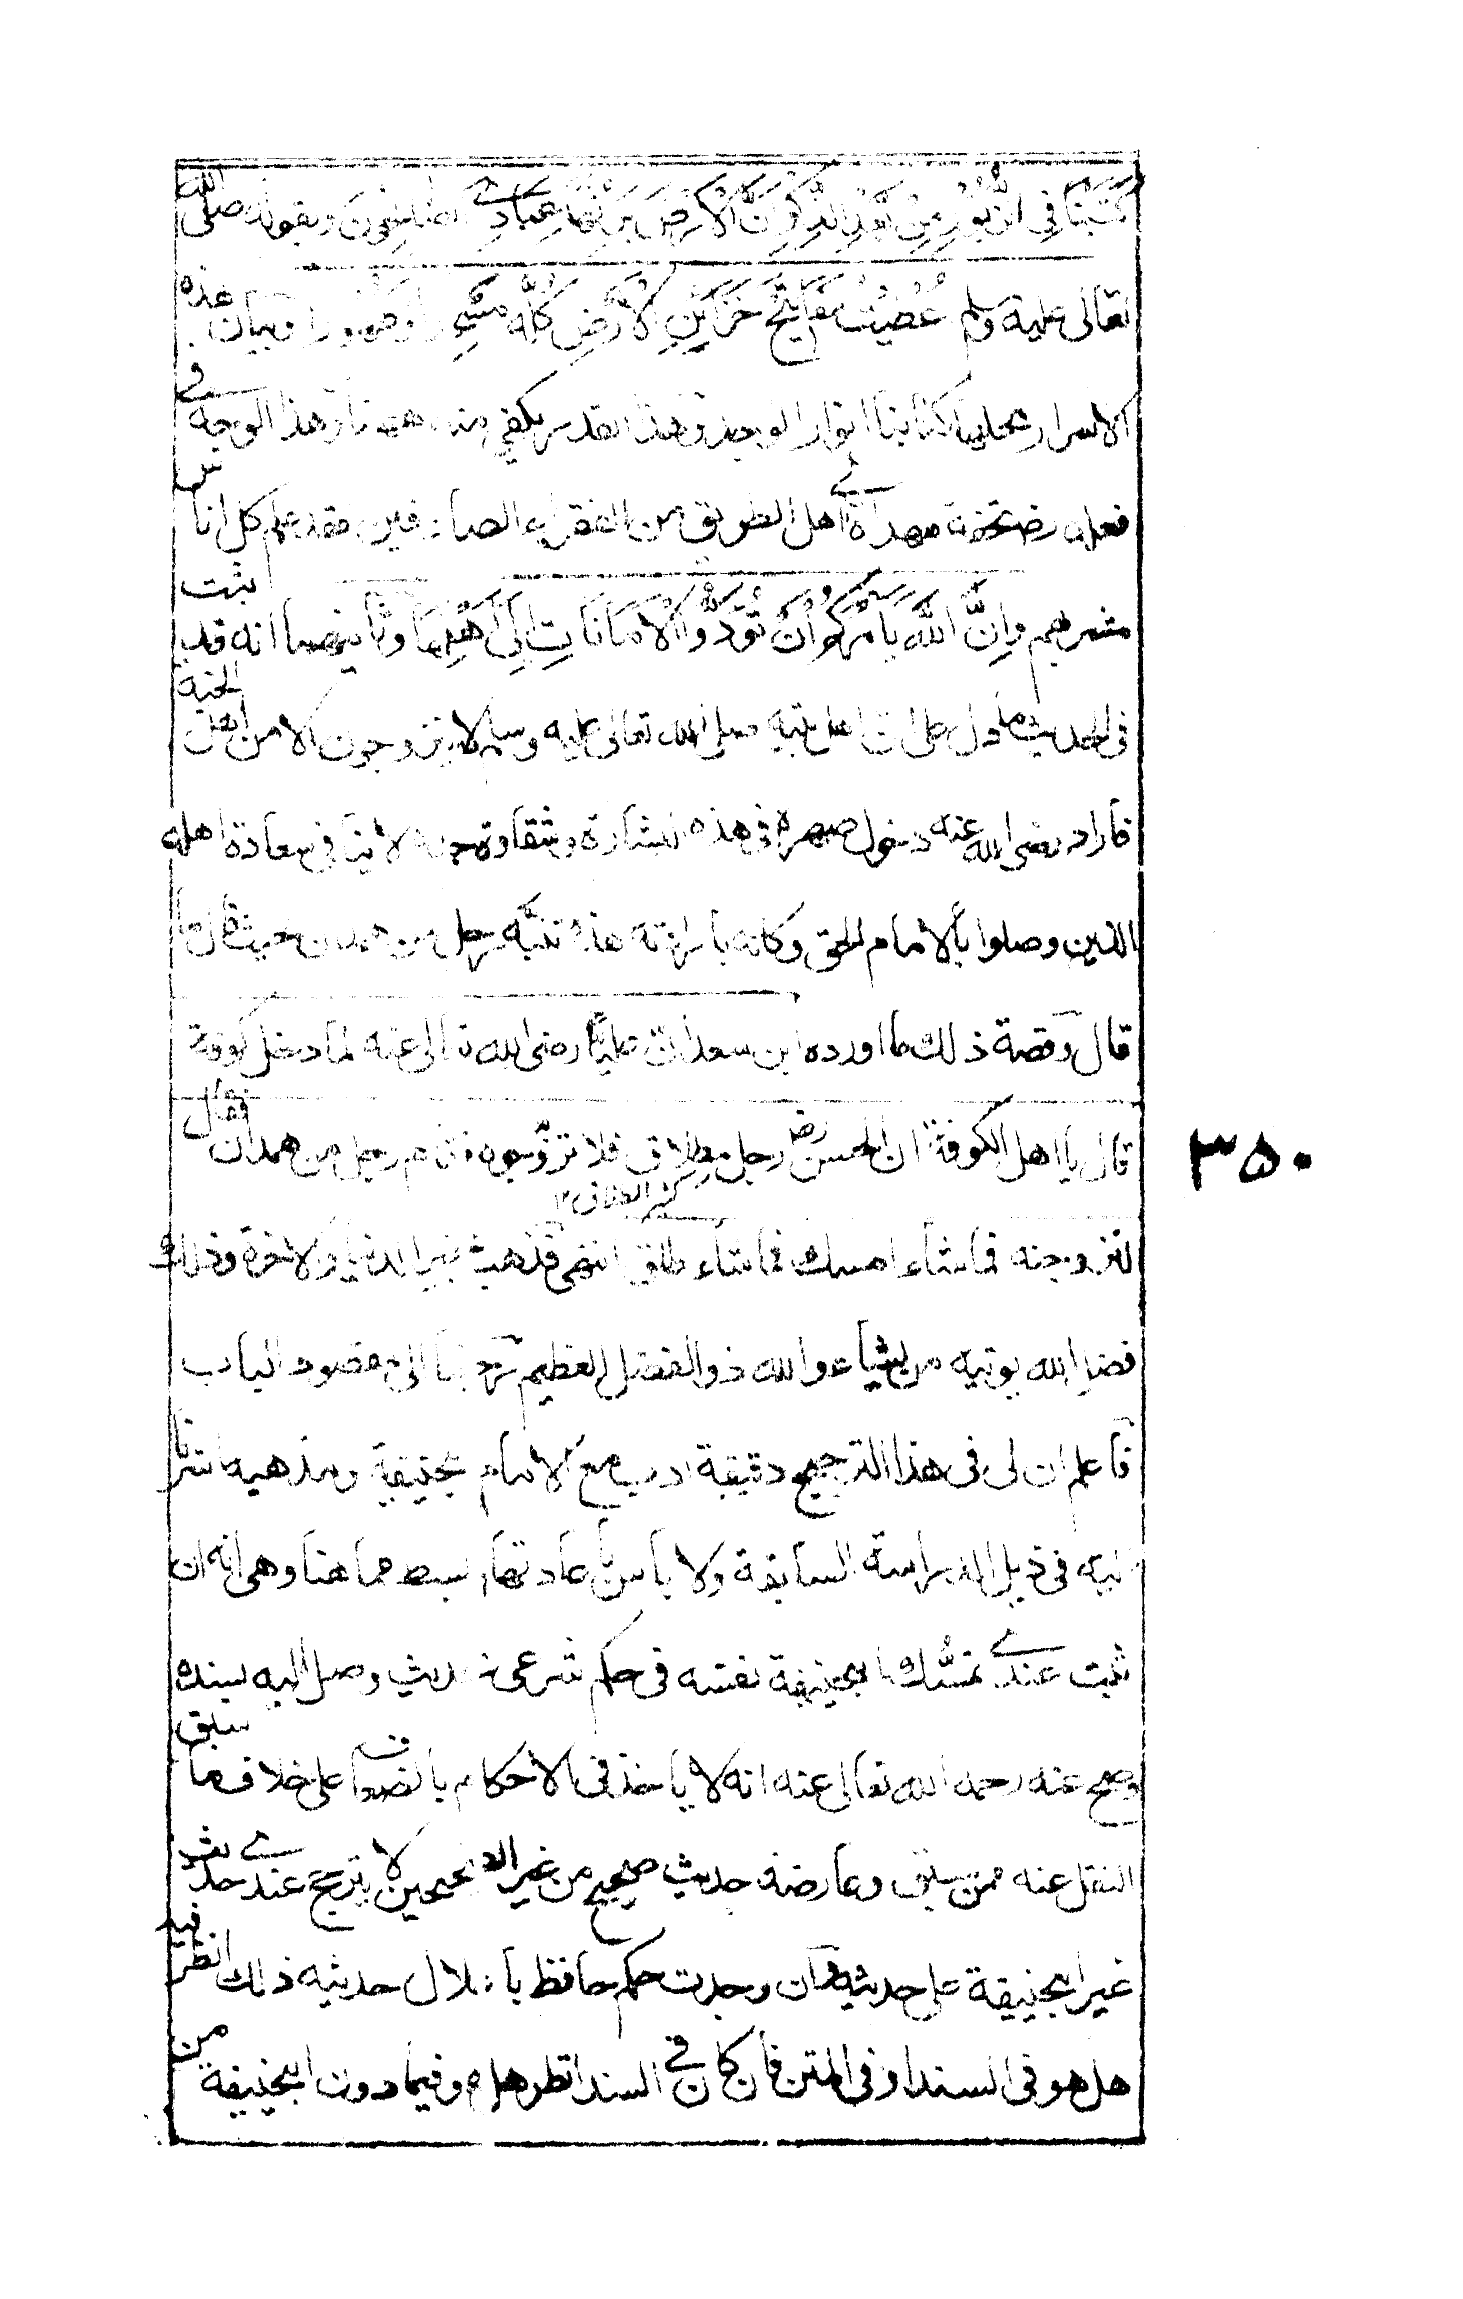 كَتَبْنَا فِي الزَّبُوْرِ مِنْ بَعْدِ الذِّكْرِ اَنَّ الْاَرْضَ يَرِثُهَا عِبَادِيَ الصَّالِحُوْنَ وبقوله صلى الله
تعالى عليه وسلم اُعْطِيْتُ مَفَاتِيْحَ خَزَائِنِ الْاَرْضِ كُلُّهٗ وبيان هذه
الاسرار محلها كتابنا انوار الوجد وهذا القدر يكفي منه ههنا وهذا الوجه في
فعله رضـ تحفة مهداة الى اهل الطريق من الفقراء الصادقين فقد علم كل اناس
مشربهم وَاِنَّ اللّٰهَ يَاْمُرُكُمْ اَنْ تُؤَدُّوا الْاَمَانَاتِ اِلٰى اَهْلِهَا وثانيهما انه قد ثبت
في الحديث ما دل على ان اهل بيته صلى الله تعالى عليه وسلم لا يتزوجون الا من اهل الجنة
فاراد رضى الله عنه دخول صهره في هذه البشارة وشقاوة لا ينافي سعادة اهله
الذين وصلوا بالامام الحق وكانه بارادته هذه تنبّه رجل من همدان حيث قال ما
قال وقصة ذلك ما اورده ابن سعد ان عليًّا رضى الله تعالى عنه لما دخل كوفة
قال يا اهل الكوفة ان الحسن رضـ رجل مطلاق فلا تزوّجوه فقام رجل من همدان فقال
كثير الطلاق ١٢
لنزوجنه فما شاء امسك فما شاء طلق انتهى فذهب بخير الدنيا والاخرة وذلك
فضل الله يوتيه من يشاء والله ذو الفضل العظيم رجعنا الى مقصود الباب
فاعلم ان لى في هذا الترجيح دقيقة ادب مع الامام ابيحنيفة ومذهبه اشرنا
اليه في ذيل الدراسة السابقة ولا باس باعادتها بسط مما هنا وهى انه ان
ثبت عندى تمسّك ابيحنيفة نفسه في حكم شرعى بحديث وصل اليه بسنده
وصح عنه رحمه الله تعالى عنه انه لا ياخذ في الاحكام بالضعفاء على خلاف ما سبق
النقل عنه ممن سبق وعارضه حديث صحيح من غير الصحيحين لا يترجح عندى حديث
غير ابيحنيفة على حديثه وان وجدت حكم حافظ باعلال حديثه ذلك انظر فيه
هل هو في السند او في المتن فان كان في السند انظر هل هو فيما دون ابيحنيفة من
٣٥٠